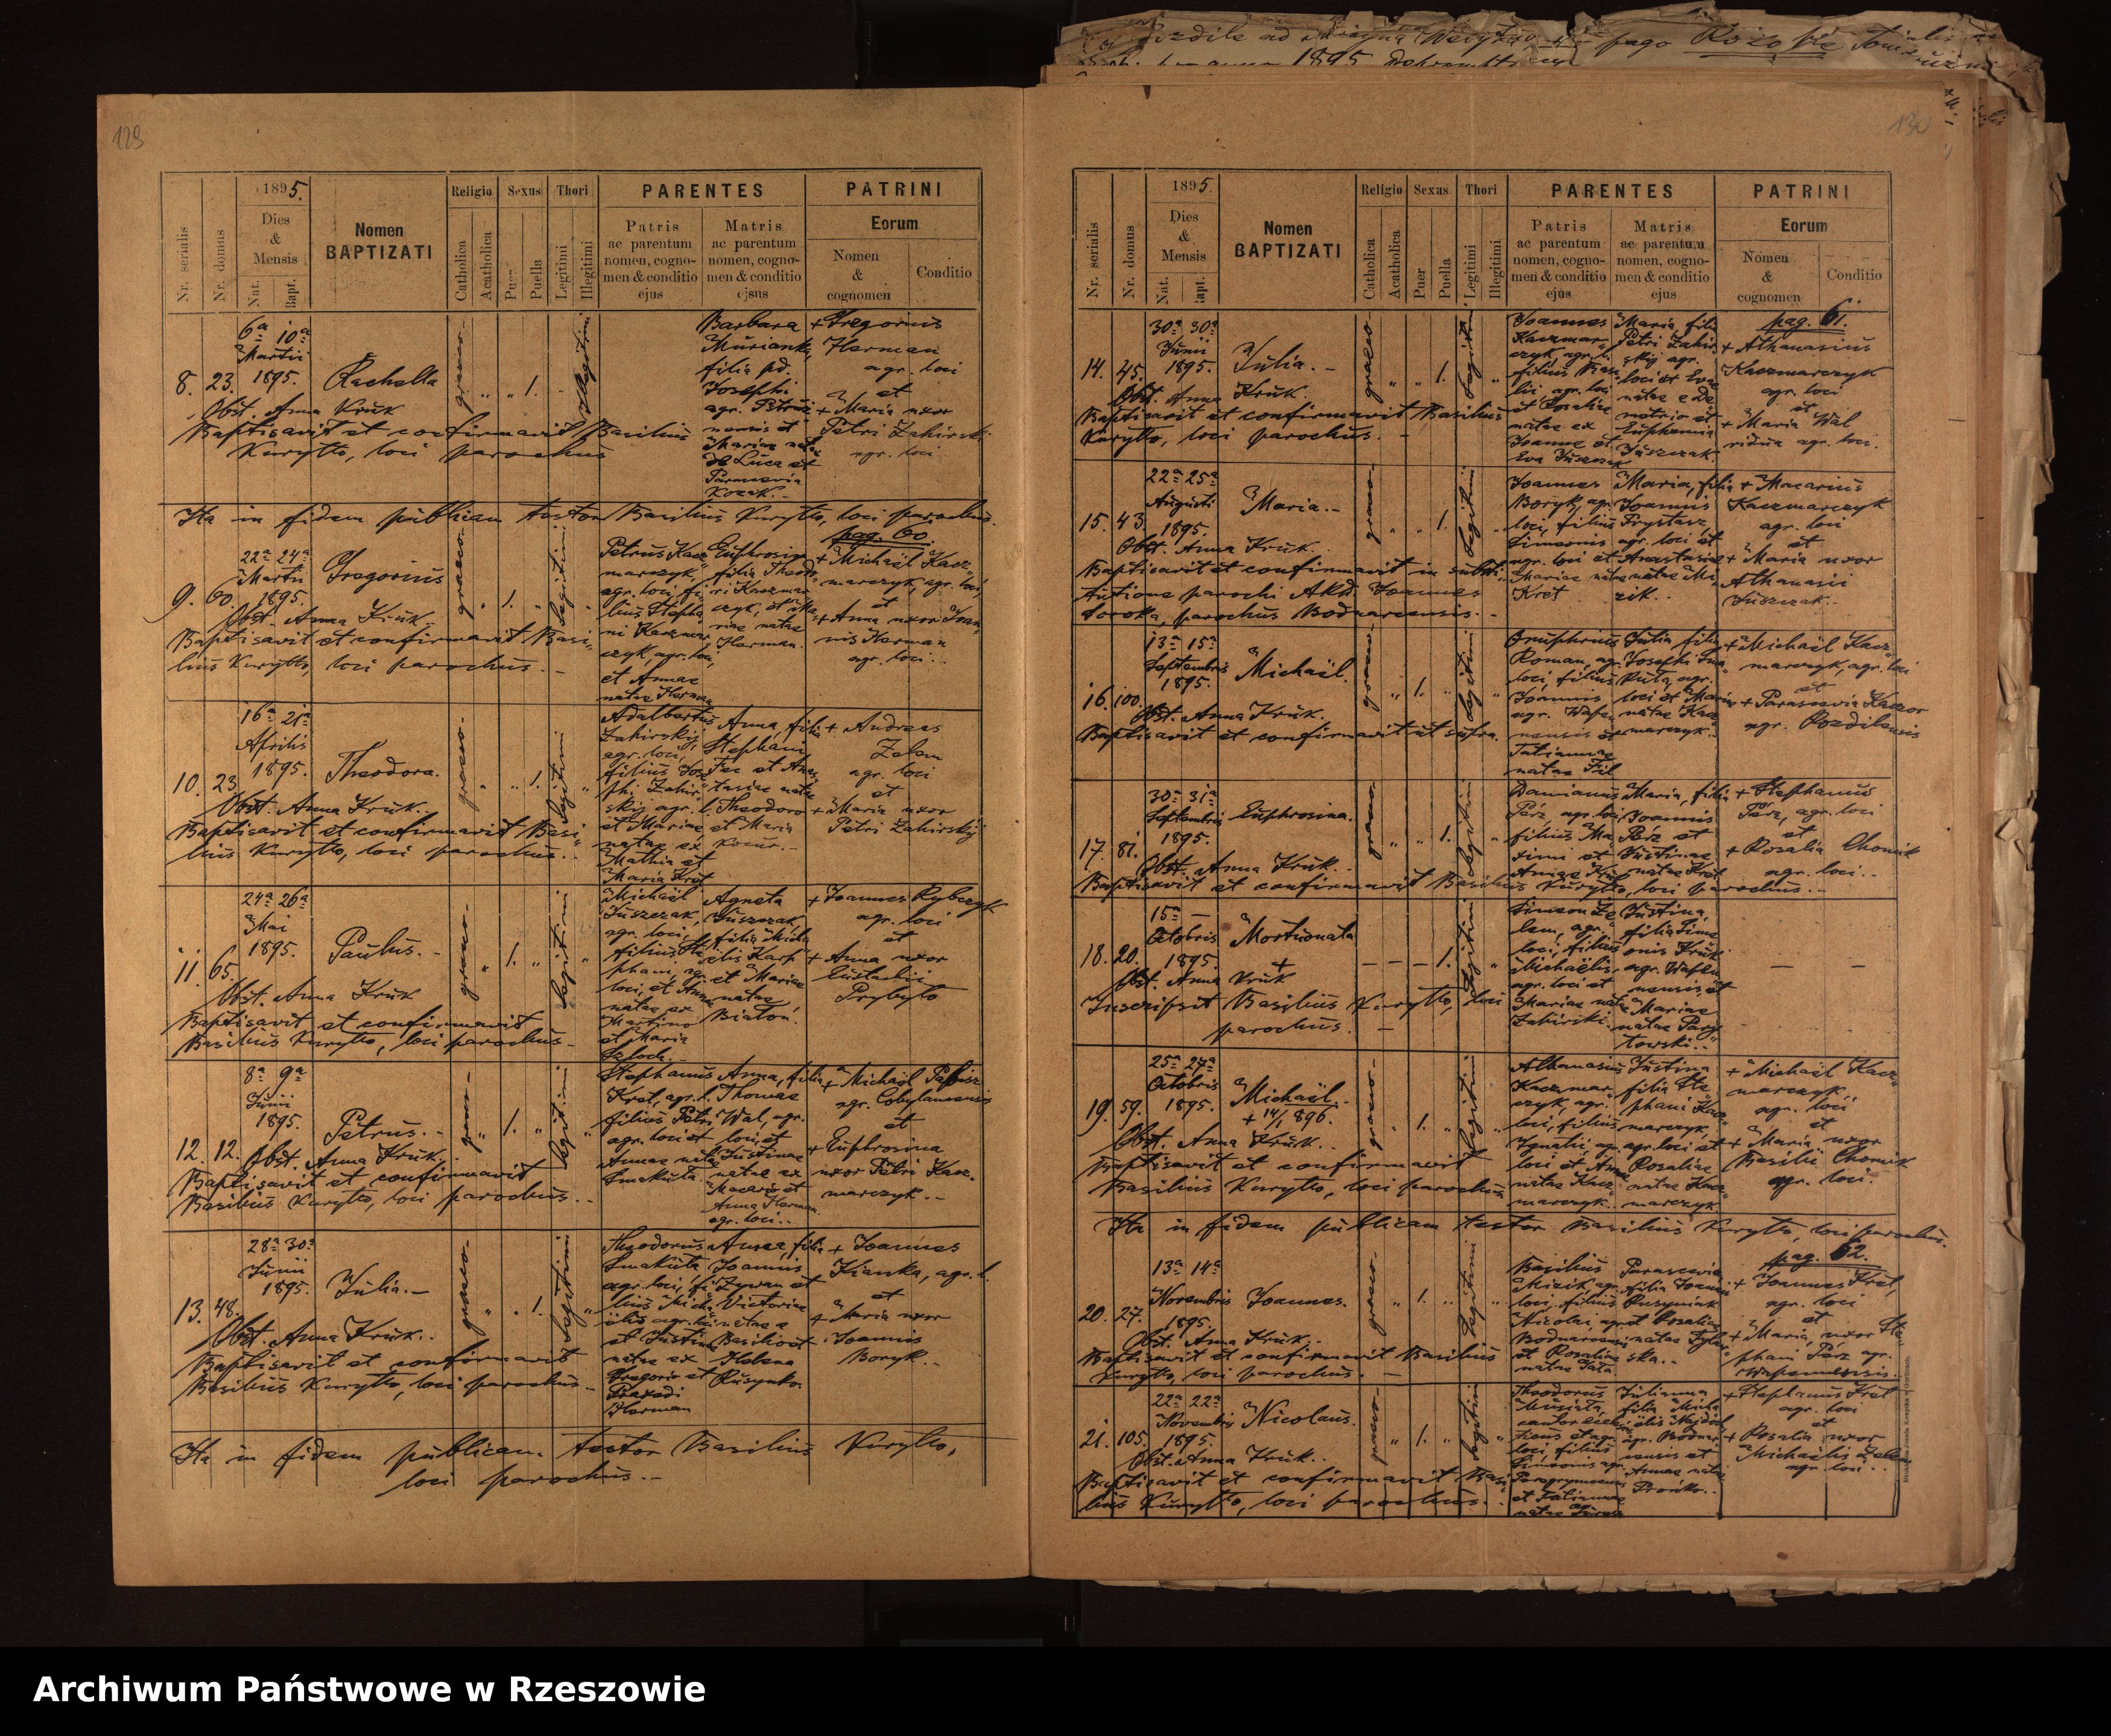 129
1895.
Nr. serialis
Nr. domus
Dies
&
Mensis
Nat.
Bapt.
Nomen
BAPTIZATI
Religio
Catholica
Acatholica
Sexus
Puer
Puella
Thori
Legitimi
Illegitimi
PARENTES
Patris
ac parentum
nomen, cogno-
men & conditio
ejus
Matris
ac parentum
nomen, cogno-
men & conditio
ejsus
PATRINI
Eorum
Nomen
&
cognomen
Conditio
8. 23.
6a 10a
Martii
1895.
Rachella
graeco
1.
Illegitimi
Obst. Anna Kruk
Baptisavit et confirmavit Basilius
Kuryłło, loci parochus
Barbara
filia
Josephi
Kozak.
+ Gregorius
Herman
agr. loci
et
+ Maria uxor
Petri Zahirski
agr. loci
Ita in fidem publicam testor Basilius Kuryłło, loci parochus.
pag. 60.
9. 60.
22a 24a
Martii
1895.
Gregorius
graeco
1.
Legitimi
Obst. Anna Kruk.
Baptisavit et confirmavit Basi-
lius Kuryłło, loci parochus.
Petrus Kacz-
marczyk,
agr. loci, fi-
lius Stepha-
ni Kaczmar-
czyk, agr. loci,
et Annae
natae Herman
Euphrosina
filia Theodo-
ri Kaczmar-
czyk, et Ma-
riae natae
Herman.
+ Michaël Kacz-
marczyk, agr. loci
et
+ Anna uxor Joan-
nis Herman
agr. loci.
10. 23.
16a 21a
Aprilis
1895.
Theodora.
graeco
1.
Legitimi
Obst. Anna Kruk.
Baptisavit et confirmavit Basi-
lius Kuryłło, loci parochus.
Adalbertus
Zahirskij,
agr. loci,
filius Jose-
phi Zahir-
skij agr. l.
et Mariae
natae ex
Mathia et
Maria Kret
Anna, filia
Stephani
Fec et Anas-
tasiae natae
Theodoro
et Maria
Kocur.
+ Andreas
Zelem
agr. loci
et
+ Maria uxor
Petri Zahirskij
11. 65.
24a 26a
Mai
1895.
Paulus.
graeco
1.
Legitimi
Obst. Anna Kruk
Baptisavit et confirmavit
Basilius Kuryłło, loci parochus.
Michaël
Juszczak,
agr. loci,
filius Ste-
phani, agr.
loci, et Annae
natae ex
Martino
et Maria
Agneta
Juszczak,
filia Micha-
ëlis Karp
et Mariae
natae
Biłtoń.
+ Joannes Rybczyk
agr. loci
et
+ Anna uxor
Eustachii
Prybyło
12. 12.
8a 9a
Junii
1895.
Petrus.
1.
Legitimi
Obst. Anna Kruk.
Baptisavit et confirmavit
Basilius Kuryłło, loci parochus.
Stephanus
Kret, agr. l.
filius Petri
agr. loci et
Annae natae
Smakuta.
Anna, filia
Thomae
Wal, agr.
loci, et
Justinae
natae ex
Macario et
Anna Herman
agr. loci.
+ Michaël
agr. Cobylanensis
et
+ Euphrosina
uxor Petri Kacz-
marczyk.
13. 48.
28a 30a
Junii
1895.
Julia.
graeco
1.
Legitimi
Obst. Anna Kruk.
Baptisavit et confirmavit
Basilius Kuryłło, loci parochus.
Theodorus
Smakuta
agr. loci, fi-
lius Micha-
ëlis agr. loci
et Justinae
natae ex
Gregorio et
Paraxedi
Herman
Anna, filia
Joannis
Zywan et
Victoriae
natae e
Basilio et
Helena
Rusynko.
+ Joannes
Kianka, agr. l.
et
+ Maria uxor
Joannis
Boryk.
Ita in fidem publicam testor Basilius Kuryłło,
loci parochus.
130
1895.
Nr. serialis
Nr. domus
Dies
&
Mensis
Nat.
Bapt.
Nomen
BAPTIZATI
Religio
Catholica
Acatholica
Sexus
Puer
Puella
Thori
Legitimi
Illegitimi
PARENTES
Patris
ac parentum
nomen, cogno-
men & conditio
ejus
Matris
ac parentum
nomen, cogno-
men & conditio
ejus
PATRINI
Eorum
Nomen
&
cognomen
Conditio
pag. 61.
14. 45.
30a 30a
Junii
1895.
Julia.
graeco
1.
Legitimi
Obst. Anna Kruk.
Baptisavit et confirmavit Basilius
Kuryłło, loci parochus.
Joannes
Kaczmar-
czyk, agr. l.
filius Basi-
lii, agr. loci
et Rosaliae
natae ex
Joanne et
Eva Juszczak
Maria, filia
Petri Zahir-
skij agr.
loci et Evae
natae e De-
metrio et
Euphemia
Juszczak.
+ Athanasius
Kaczmarczyk
agr. loci
et
+ Maria Wal
vidua agr. loci.
15. 43.
22a 25a
Augusti
1895.
Maria.
graeco
1.
Legitimi
Obst. Anna Kruk.
Baptisavit et confirmavit in substi-
tutione parochi Akd. Joannes
Soroka, parochus Bodnarcensis.
Joannes
Boryk, agr.
loci, filius
Simeonis
agr. loci et
Mariae natae
Kret
Maria, filia
Joannis
Frystasz,
agr. loci et
Anastasiae
natae Mi-
zik.
+ Macarius
Kaczmarczyk
agr. loci
et
+ Maria uxor
Athanasii
Juszczak.
16. 100.
13a 15a
Septembris
1895.
Michaël.
graeco
1.
Legitimi
Obst. Anna Kruk.
Baptisavit et confirmavit ut supra.
Onuphrius
Roman, agr.
loci, filius
Joannis
agr. Wape-
nensis et
Tatiannae
natae Fil
Julia filia
Josephi Sma-
kuta, agr.
loci et Mariae
natae Kacz-
marczyk.
+ Michaël Kacz-
marczyk, agr. loci
et
+ Parascevia Kaczor
agr. Pozdilensis
17. 81.
30a 31a
Septembris
1895.
Euphrosina.
graeco
1.
Legitimi
Obst. Anna Kruk.
Baptisavit et confirmavit Basilius Kuryłło, loci parochus.
Damianus
Pérz, agr. loci,
filius Ma-
ximi et
Annae Kruk
Maria, filia
Joannis
Pérz et
Justinae
natae Kret
+ Stephanus
Pérz, agr. loci
et
+ Rosalia Chomik
agr. loci.
18. 20.
15a —
Octobris
1895.
Mortuonata
+
1.
Legitimi
Obst. Anna Kruk
Inscripsit Basilius Kuryłło, loci
parochus.
Simeon Ze-
lem, agr.
loci, filius
Michaëlis,
agr. loci et
Mariae natae
Zahirski.
Justina,
filia Sime-
onis Kruk
agr. Wape-
nensis, et
Mariae
natae Pary-
łowski.
19. 59.
25a 27a
Octobris
1895.
Michaël.
+ 14/1 896.
graeco
1.
Legitimi
Obst. Anna Kruk.
Baptisavit et confirmavit
Basilius Kuryłło, loci parochus.
Athanasius
Kaczmar-
czyk, agr.
loci, filius
Ignatii, agr.
loci et Annae
natae Kacz-
marczyk.
Justina
filia Ste-
phani Kacz-
marczyk,
agr. loci et
Rosaliae
natae Kacz-
marczyk
+ Michaël Kacz-
marczyk,
agr. loci
et
+ Maria uxor
Basilii Chomik
agr. loci.
Ita in fidem publicam testor Basilius Kuryłło, loci parochus.
pag. 62.
20. 27.
13a 14a
Novembris
1895.
Joannes.
graeco
1.
Legitimi
Obst. Anna Kruk.
Baptisavit et confirmavit Basilius
Kuryłło, loci parochus.
Basilius
Mizik, agr.
loci, filius
Nicolai, agr.
Bodnarcensis
et Rosaliae
natae
Parascevia
filia Joannis
Rusyniak
et Rosaliae
+ Joannes Kret,
agr. loci
et
+ Maria, uxor Ste-
phani Pérz agr.
Wapennensis.
21. 105.
22a 22a
Novembris
1895.
Nicolaus.
graeco
1.
Legitimi
Obst. Anna Kruk.
Baptisavit et confirmavit Basi-
lius Kuryłło, loci parochus.
Theodorus
loci, filius
Simeonis agr.
et Tatiannae
Julianna
filia Micha-
Annae natae
+ Stephanus Kret
agr. loci
et
+ Rosalia uxor
Michaëlis Zelem
agr. loci.
Archiwum Państwowe w Rzeszowie